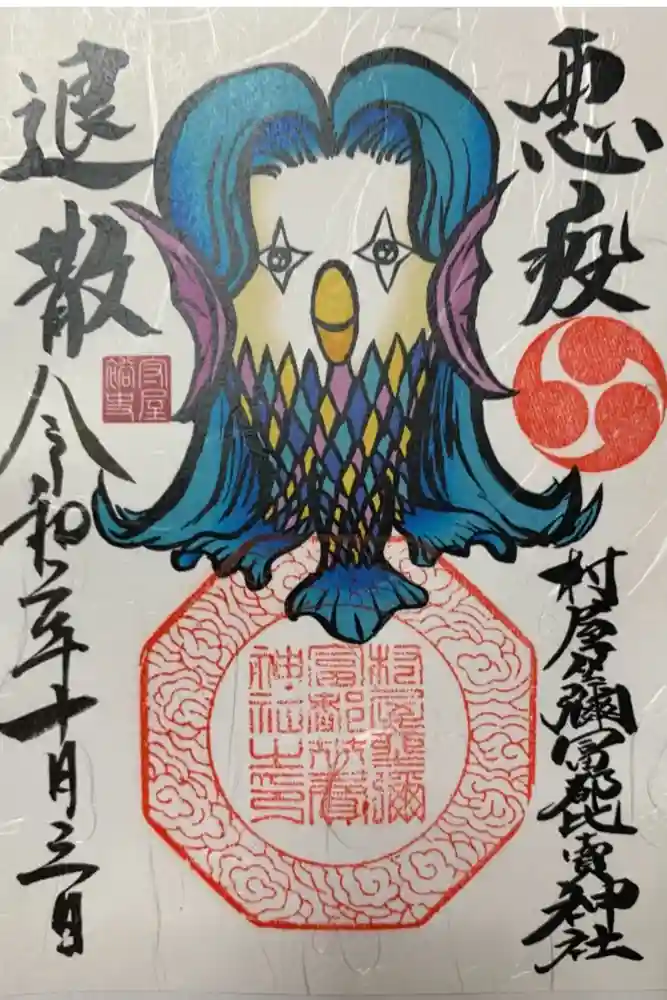 悪疫
退散
村屋坐彌冨都比賣神社
令和二年十月三日
村屋坐彌
冨都比賣
神社之印
守屋